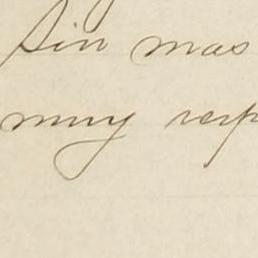 Sin mas
muy resp